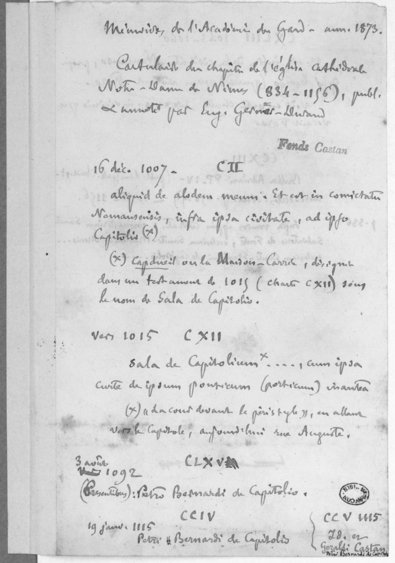 Mémoires de l'Académie du Gard - ann. 1873.
Cartulaire du chapitre de l'église cathédrale
Notre-Dame de Nîmes (834-1156), publ.
& annoté par Eug. Germer-Durand
Fonds Castan
16 déc. 1007. - CII
aliquid de alodem meum. Et est in comictatu
Nemausensis, infra ipsa civitate, ad ipso
Capitolio (x)
(x) Capdueil ou la Maison-Carrée, désignée
dans un testament de 1015 (charte CXII) sous
le nom de Sala de Capitolio.
vers 1015 CXII
Sala de Capitolium x ...., cum ipsa
curte de ipsum porticum (porticum)
(x) la cour devant le péristyle, en allant
vers le Capitole, aujourd'hui rue Auguste.
3 août
1092 CLXV
(Presentibus): Petro Bernardi de Capitolio.
CCIV
19 janv. 1115
Petri Bernardi de Capitolio
CCV 1115
Geraldi Castan